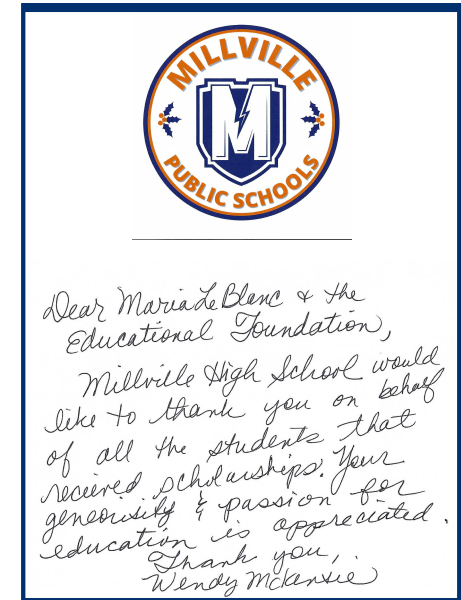 MILLVILLE
M
PUBLIC SCHOOLS
Dear Maria LeBlanc & the
Educational Foundation,
Millville High School would
like to thank you on behalf
of all the students that
recieved scholarships. Your
geneorisity & passion for
education is appreciated.
Thank you,
Wendy McKensie